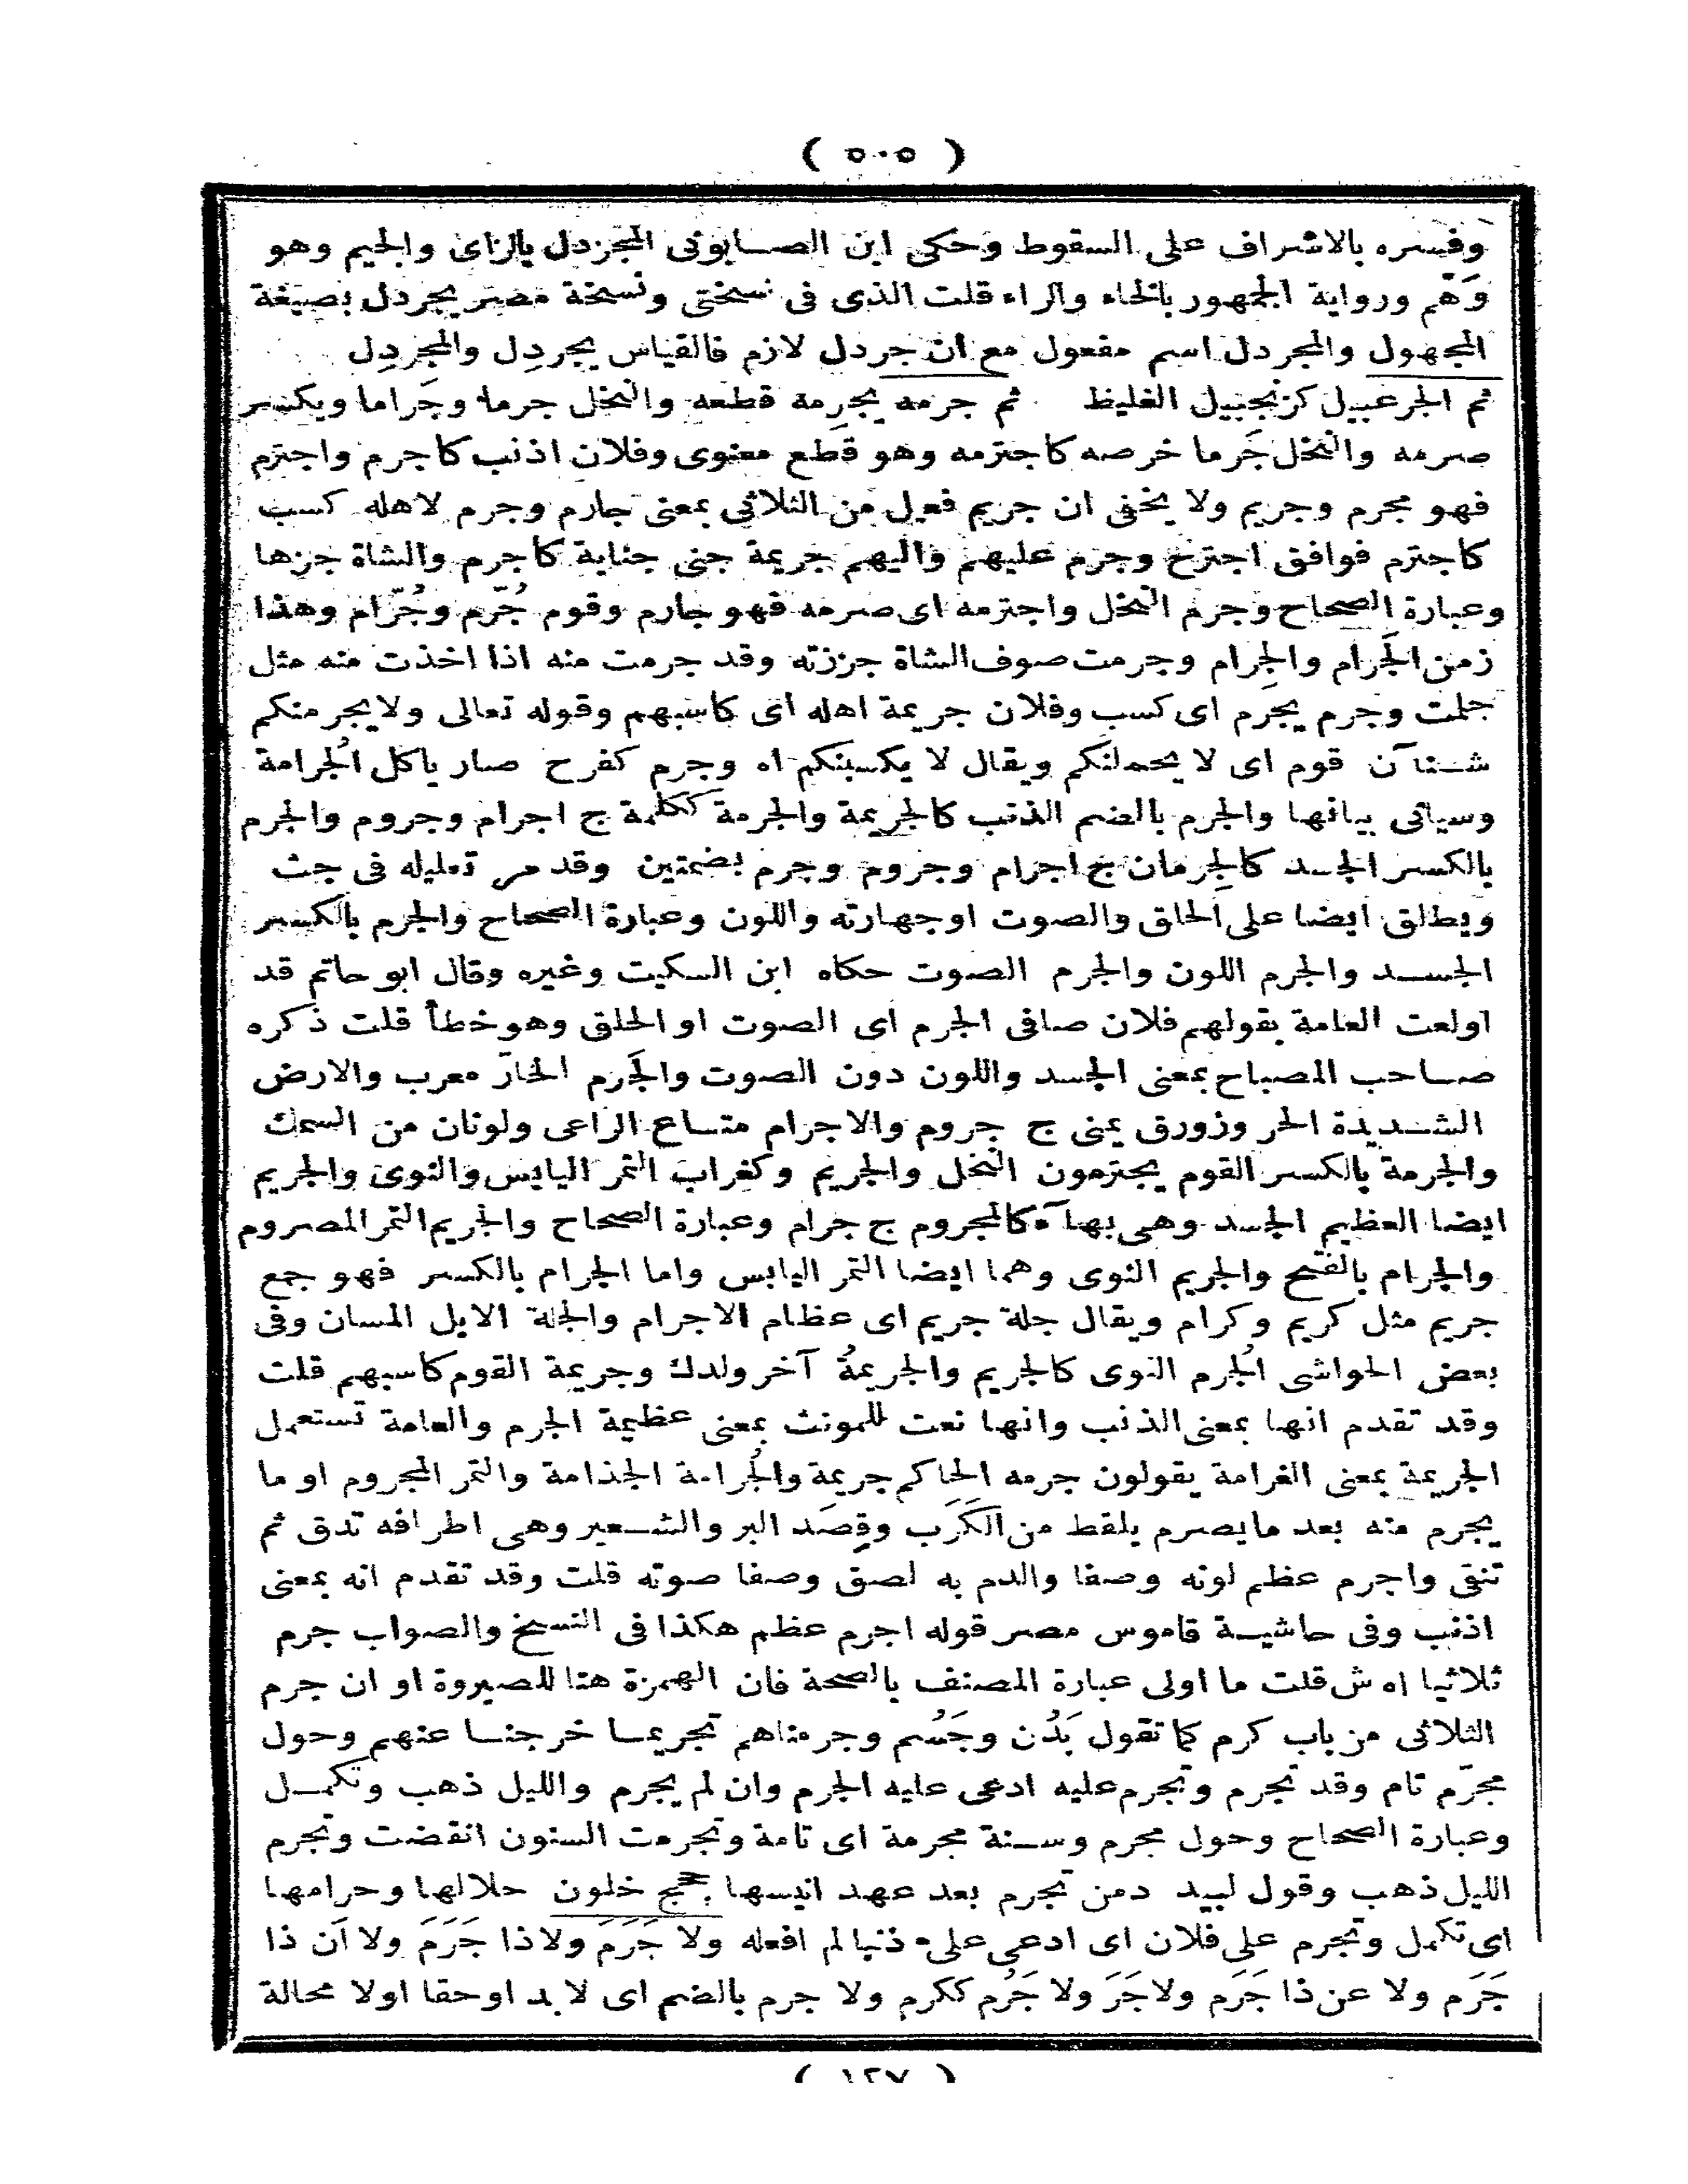 ( ٥٠٥ )
وفسره بالاشراف على السقوط وحكى ابن الصابونى المجزدل بالزاى والجيم وهو
وَهَم ورواية الجمهور بالخاء والراء قلت الذى فى نسختى ونسخة مصر يجردل بصيغة
المجهول والمجردل اسم مفعول مع ان جردل لازم فالقياس يجردِل والمجردِل
ثم الجرعبيل كزنجبيل الغليظ ثم جرمه يجرِمة قطعه والنخل جرما وجَراما ويكسر
صرمه والنخل جَرما خرصه كاجترمه وهو قطع معنوى وفلان اذنب كاجرم واجترم
فهو مجرم وجريم ولا يخفى ان جريم فعيل من الثلاثى بمعنى جارم وجرم لاهله كسب
كاجترم فوافق اجترح وجرم عليهم واليهم جريمة جنى جناية كاجرم والشاة جزها
وعبارة الصحاح وجرم النخل واجترمه اى صرمه فهو جارم وقوم جُرّم وجُرّام وهذا
زمن الجَرام والجِرام وجرمت صوف الشاة جززته وقد جرمت منه اذا اخذت منه مثل
جلمت وجرم يجرم اى كسب وفلان جريمة اهله اى كاسبهم وقوله تعالى ولا يجرمنكم
شنآن قوم اى لا يحملنكم ويقال لا يكسبنكم اه وجرم كفرح صار ياكل الجُرامة
وسياتى بيانها والجرم بالضم الذنب كالجريمة والجرمة ككلمة ج اجرام وجروم والجرم
بالكسر الجسد كالجِرمان ج اجرام وجروم وجرم بضمتين وقد مر تعليله فى جث
ويطلق ايضا على الحلق والصوت اوجهارته واللون وعبارة الصحاح والجرم بالكسر
الجسد والجرم اللون والجرم الصوت حكاه ابن السكيت وغيره وقال ابو حاتم قد
اولعت العامة بقولهم فلان صافى الجرم اى الصوت او الحلق وهو خطأ قلت ذكره
صاحب المصباح بمعنى الجسد واللون دون الصوت والجَرم الحارّ معرب والارض
الشديدة الحر وزورق يمنى ج جروم والاجرام متاع الراعى ولونان من السمك
والجرمة بالكسر القوم يجترمون النخل والجريم وكغراب التمر اليابس والنوى والجريم
ايضا العظيم الجسد وهى بهاآء كالمجروم ج جرام وعبارة الصحاح والجريم التمر المصروم
والجرام بالفتح والجريم النوى وهما ايضا التمر اليابس واما الجرام بالكسر فهو جمع
جريم مثل كريم وكرام ويقال جلة جريم اى عظام الاجرام والجلة الابل المسان وفى
بعض الحواشى الجُرم النوى كالجريم والجريمةُ آخر ولدك وجريمة القوم كاسبهم قلت
وقد تقدم انها بمعنى الذنب وانها نعت للمونث بمعنى عظيمة الجرم والعامة تستعمل
الجريمة بمعنى الغرامة يقولون جرمه الحاكم جريمة والجُرامة الجذامة والتمر المجروم او ما
يجرم منه بعد ما يصرم يلقط من الكَرَب وقِصَد البر والشعير وهى اطرافه تدق ثم
تنقى واجرم عظم لونه وصفا والدم به لصق وصفا صوته قلت وقد تقدم انه بمعنى
اذنب وفى حاشية قاموس مصر قوله اجرم عظم هكذا فى النسخ والصواب جرم
ثلاثيا اه ش قلت ما اولى عبارة المصنف بالصحة فان الهمزة هنا للصيروة او ان جرم
الثلاثى من باب كرم كما تقول بَدُن وجَسُم وجرمناهم تجريما خرجنا عنهم وحول
مجرّم تام وقد تجرم وتجرم عليه ادعى عليه الجرم وان لم يجرم والليل ذهب وتكمل
وعبارة الصحاح وحول مجرم وسنة مجرمة اى تامة وتجرمت السنون انقضت وتجرم
الليل ذهب وقول لبيد دمن تجرم بعد عهد انيسها حجج خلون حلالها وحرامها
اى تكمل وتجرم على فلان اى ادعى علىّ ذنبا لم افعله ولا جَرَمَ ولا ذا جَرَمَ ولا اَن ذا
جَرَم ولا عن ذا جَرَم ولا جَرَ ولا جَرُم ككرم ولا جرم بالضم اى لا بد او حقا اولا محالة
( ١٢٧ )